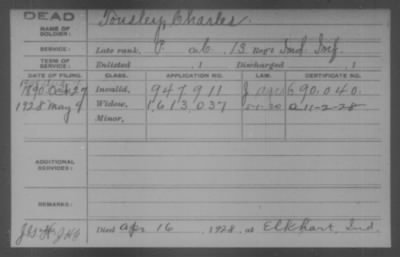 DEAD
NAME OF SOLDIER: Tousley, Charles.
SERVICE: Late rank, P Co. C. 13 Reg't Ind. Inf.
TERM OF SERVICE: Enlisted , 1 Discharged , 1
DATE OF FILING. CLASS. APPLICATION NO. LAW. CERTIFICATE NO.
1890 Oct 27 Invalid, 947,911 690.040.
1928 May 9 Widow, 1,613,037 5-1-20 a 11-2-28
Minor,
ADDITIONAL SERVICES:
REMARKS:
Died Apr. 16 1928, at Elkhart, Ind.